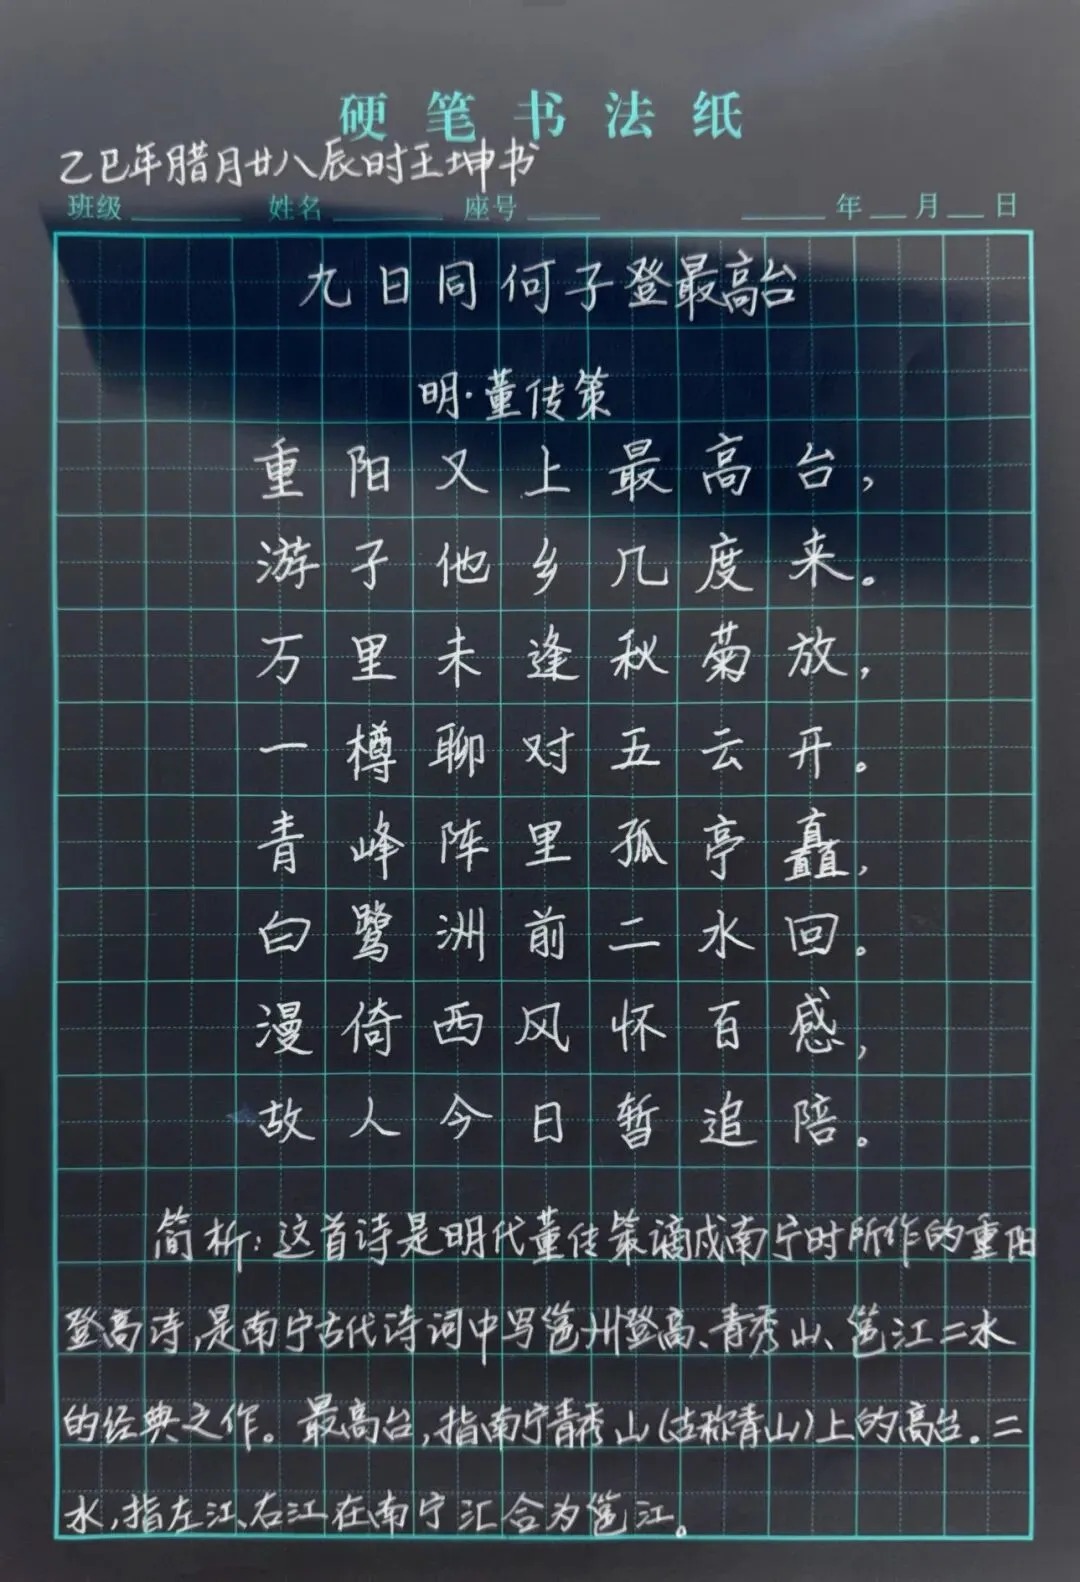 硬笔书法纸
乙巳年腊月廿八辰时王坤书
班级 姓名 座号 年 月 日
九日同何子登最高台
明·董传策
重阳又上最高台，
游子他乡几度来。
万里未逢秋菊放，
一樽聊对五云开。
青峰阵里孤亭矗，
白鹭洲前二水回。
漫倚西风怀百感，
故人今日暂追陪。
简析：这首诗是明代董传策谪戍南宁时所作的重阳
登高诗，是南宁古代诗词中写邕州登高、青秀山、邕江二水
的经典之作。最高台，指南宁青秀山（古称青山）上的高台。二
水，指左江、右江在南宁汇合为邕江。